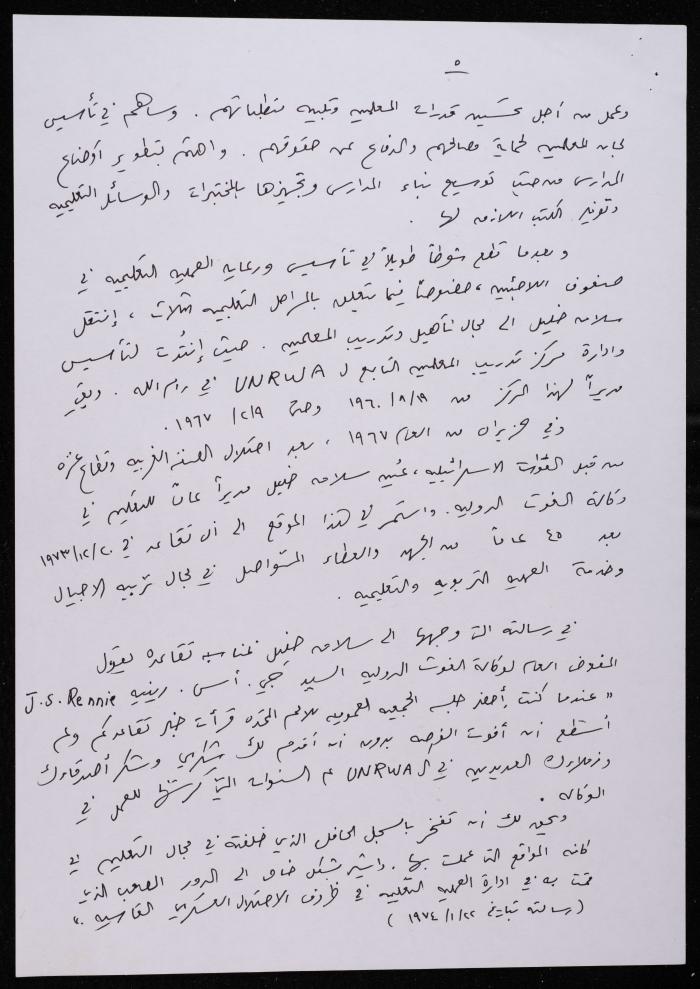 ٥
وعمل من أجل تحسين قدرات المعلمين وتلبية متطلباتهم . وساهم في تأسيس
لجان المعلمين لحماية مصالحهم والدفاع عن حقوقهم . واهتم بتطوير أوضاع
المدارس من حيث توسيع بناء المدارس وتجهيزها بالمختبرات والوسائل التعليمية
وتوفير الكتب اللازمة لها .
وبعدما قطع شوطاً طويلاً في تأسيس ورعاية العملية التعليمية في
صفوف اللاجئين ، خصوصاً فيما يتعلق بالمراحل التعليمية الثلاث ، إنتقل
سلامه خليل الى مجال تأهيل وتدريب المعلمين . حيث إنتُدب لتأسيس
وادارة مركز تدريب المعلمين التابع ل UNRWA في رام الله . وبقي
مديراً لهذا المركز من ١٩٦٠/٨/١٩ وحتى ١٩٦٧/٢/٩ .
وفي حزيران من العام ١٩٦٧ ، بعد احتلال الضفة الغربية وقطاع غزه
من قبل القوات الاسرائيلية ، عُين سلامه خليل مديراً عاماً للتعليم في
وكالة الغوث الدولية . واستمر في هذا الموقع الى أن تقاعد في ١٩٧٣/١٢/٢٠
بعد ٤٥ عاماً من الجهد والعطاء المتواصل في مجال تربية الاجيال
وخدمة العملية التربوية والتعليمية .
في رسالته التي وجهها الى سلامه خليل بمناسبة تقاعده يقول
المفوض العام لوكالة الغوث الدولية السيد جي . أس . رينيه J.S. Rennie
" عندما كنت أحضر جلسة الجمعية العمومية للامم المتحده قرأت خبر تقاعدكم ولم
أستطع أن أفوت الفرصة بدون أن أقدم لك شكري وشكر أصدقاءك
وزملاءك العديدين في الـ UNRWA على السنوات التي كرستها للعمل في
الوكالة .
ويحق لك أن تفخر بالسجل الحافل الذي خلفته في مجال التعليم في
كافة المواقع التي عملت بها . واشير بشكل خاص الى الدور الصعب الذي
قمت به في ادارة العملية التعليمية في ظروف الاحتلال العسكري القاسية . "
( رسالته بتاريخ ١٩٧٤/١/٢٢ )